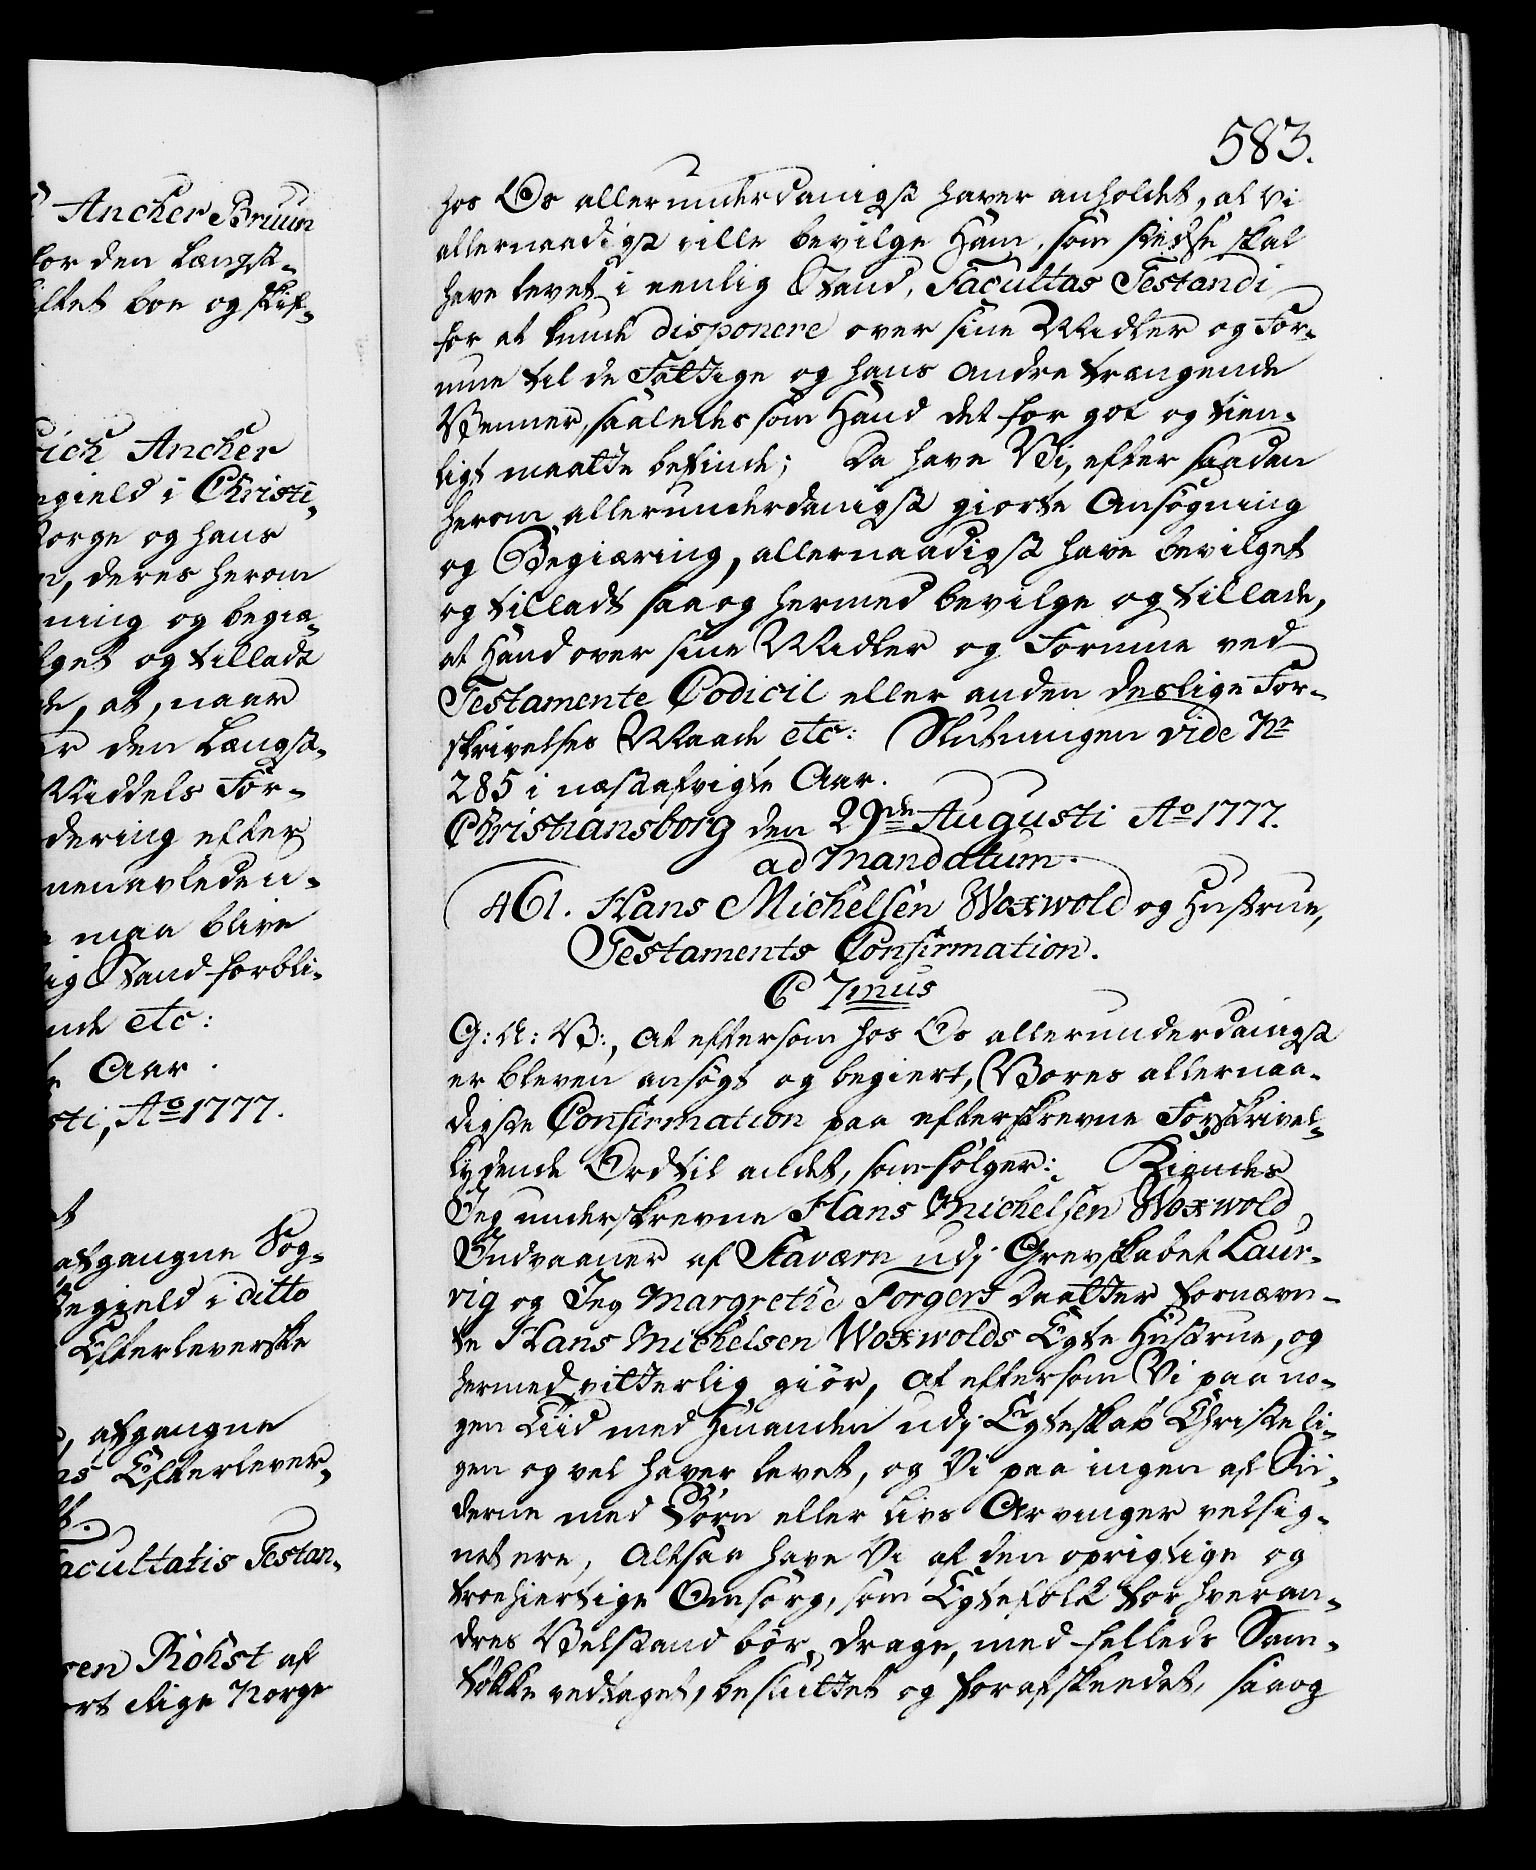 Ancher Bruun
for den Længst-
skiftet boe og skif-
rich Ancher
egield i Christi-
Norge og hans
n, deres herom
ning og begiæ-
lget og tilladt
de, at, naar
er den Længst-
Middels For-
dering efter
menavleden-
maa blive
lig Stand forbli-
nde etc:
te Aar.
sti, Ao 1777.
et
afgangne Sog-
Præstegield i ditto
Efterleverske
, afgangne
ns Efterlever-
Facultatis Testan-
sen Röhst af
ort Rige Norge
583.
hos Os allerunderdanigst haver anholdet, at Vi
allernaadigst ville bevilge Ham, som stedse skal
have levet i eenlig Stand, Facultas Testandi
for at kunde disponere over sine Midler og For-
mue til de Fattige og hans andre trængende
Venner, saaledes som Hand det for got og tien-
ligt maatte befinde; Da have Vi, efter saadan
herom allerunderdanigst giorte Ansøgning
og Begiæring, allernaadigst have bevilget
og tilladt saa og hermed bevilge og tillade,
at Hand over sine Midler og Formue ved
Testamente Codicil eller anden deslige For-
skrivelses Maade etc: Slutningen vide No
285 i næstafvigte Aar.
Christiansborg den 29de Augusti Ao 1777.
ad Mandatum.
461. Hans Michelsen Woxwold og Hustrue,
Testaments Confirmation.
C 7mus
G: A: V:, at eftersom hos Os allerunderdanigst
er bleven ansøgt og begiert, Vores allernaa-
digste Confirmation paa efterskrevne Forskrivel-
lydende Ord til andet, som følger:
Jeg underskrevne Hans Michelsen Woxwold
Indvaaner af Staværn udj Grevskabet Laur-
vig og Jeg Margrethe Forgert Daatter fornævn-
te Hans Michelsen Woxwolds Egte Hustrue, og
hermed vitterlig giør, at eftersom Vi paa no-
gen Tiid med hinanden udj Egteskab Christeli-
gen og vel haver levet, og Vi paa ingen af Sii-
derne med Børn eller Livs Arvinger velsig-
net ere, Altsaa have Vi af den oprigtige og
troehiertige Omsorg, som Egtefolk for hveran-
dres Velstand bør drage, med fælleds Sam-
tøkke vedtaget, besluttet og forafskeedet, saa og